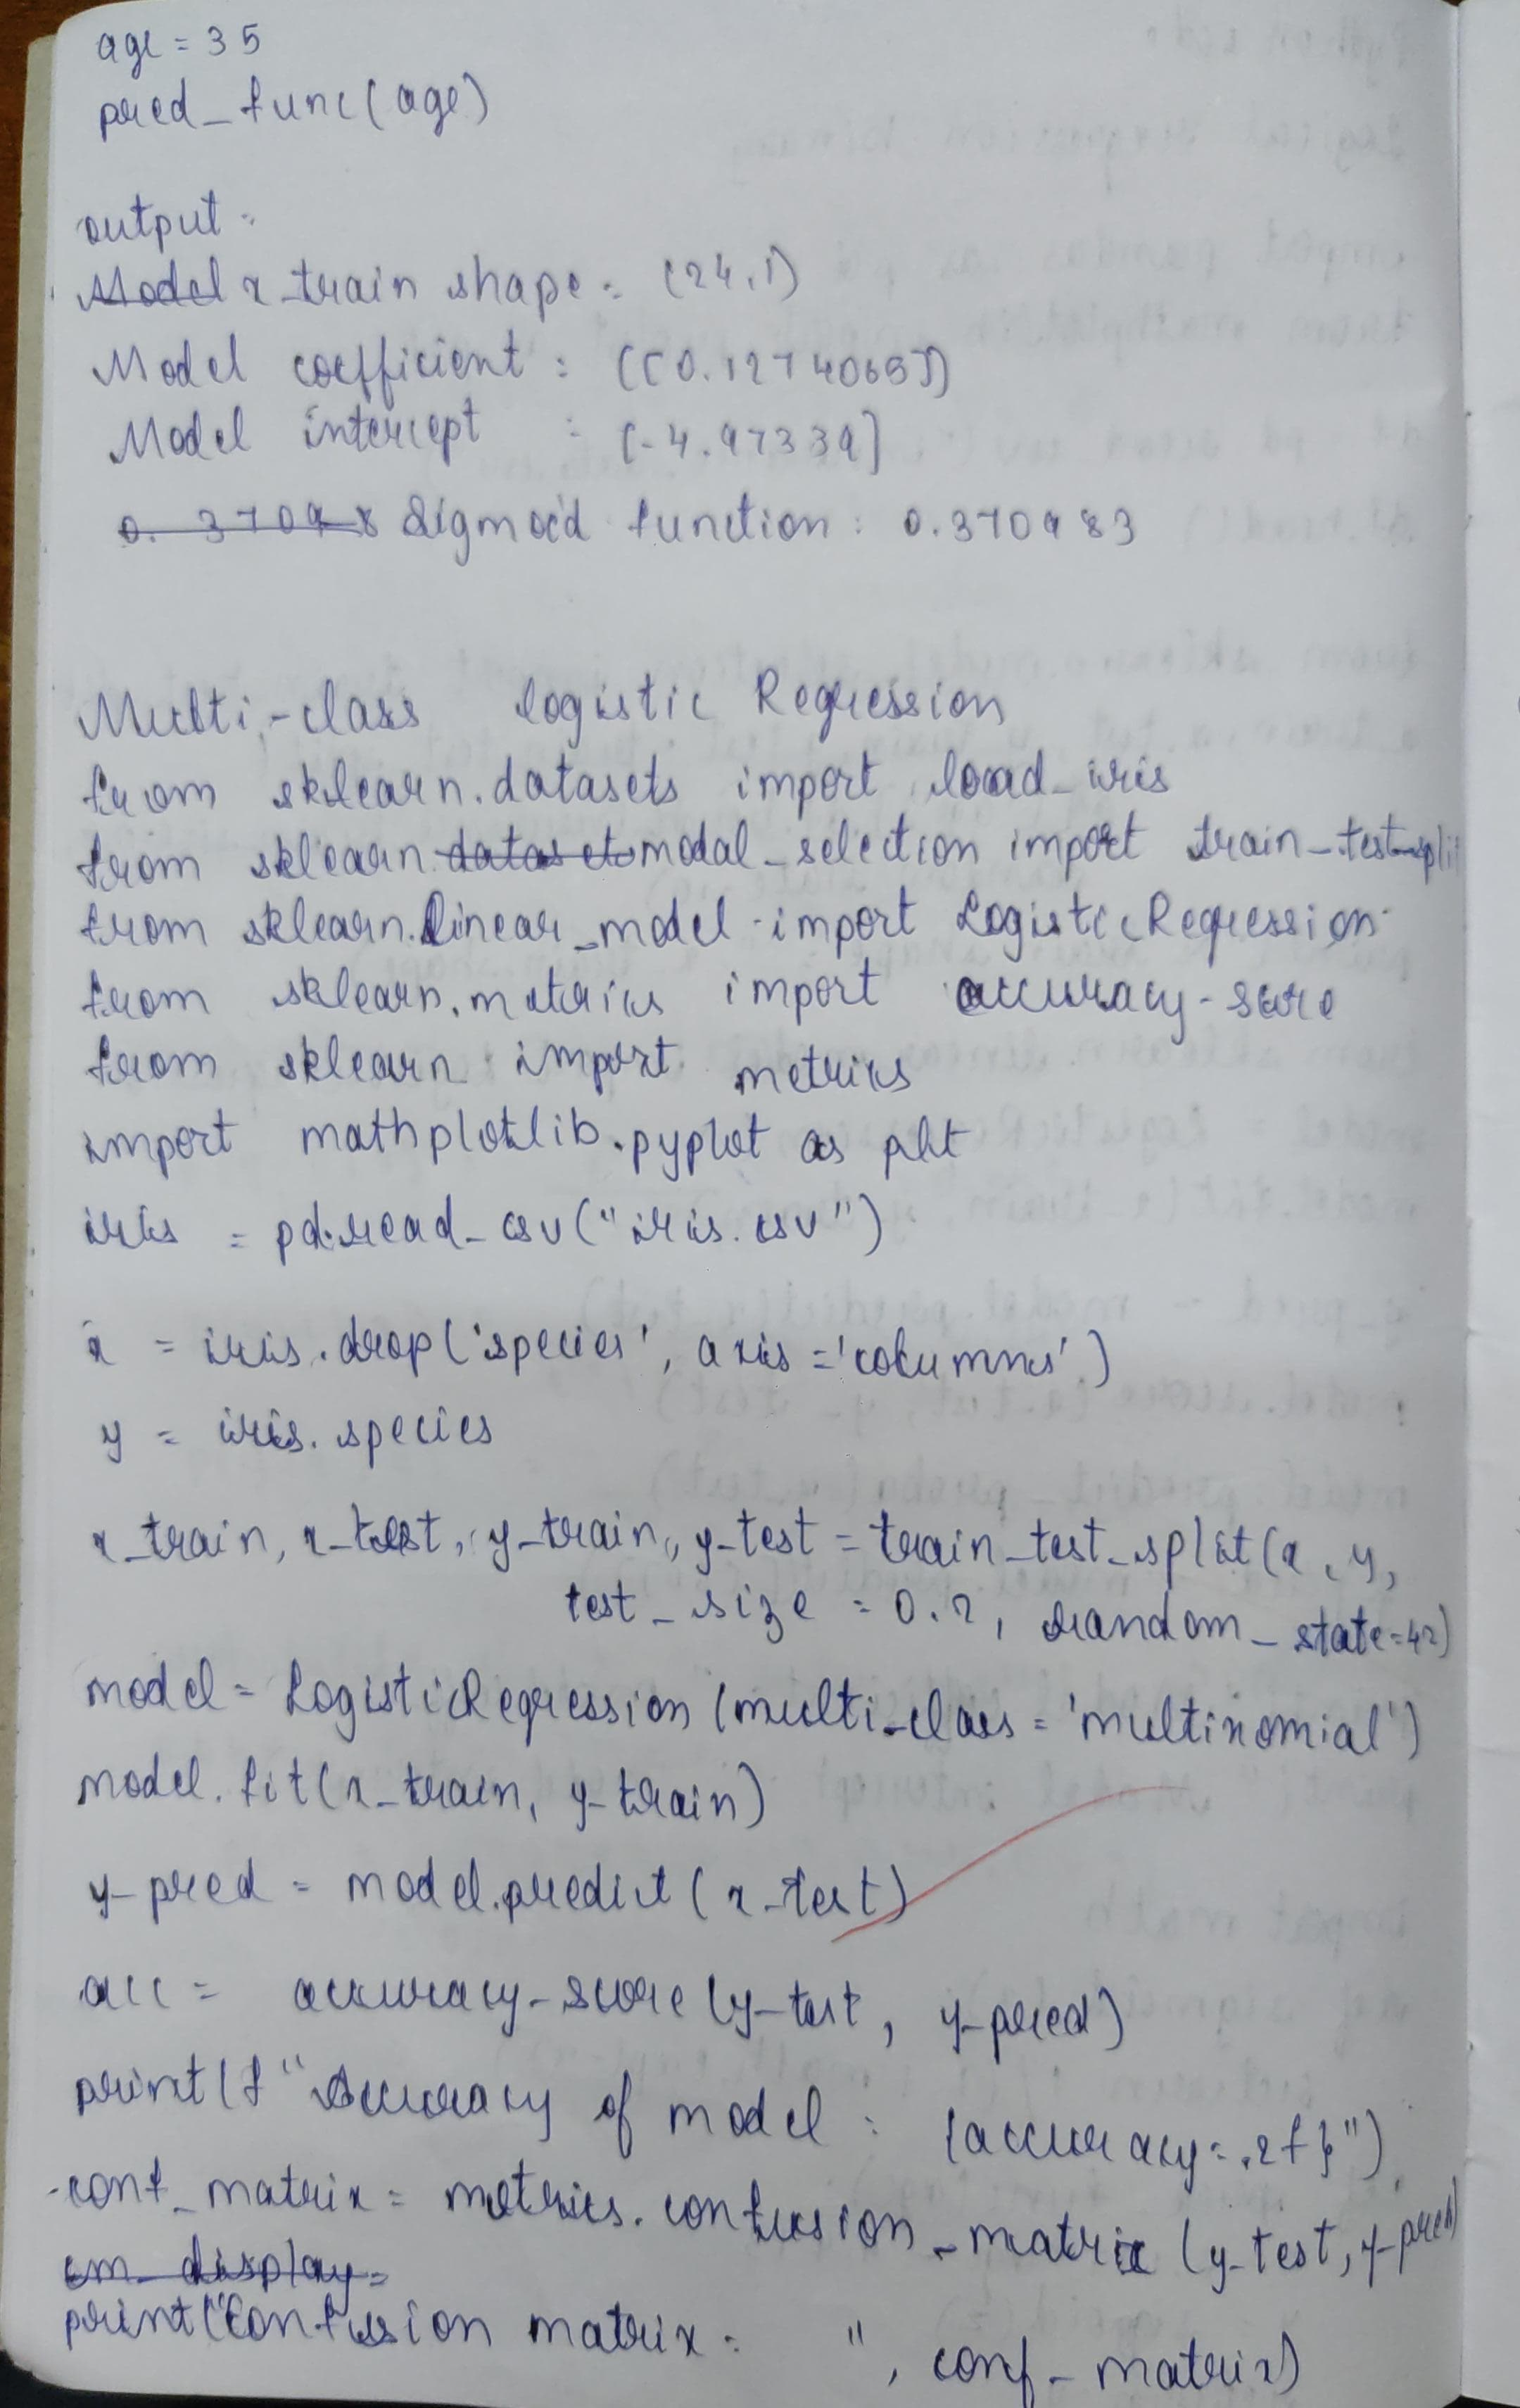 age = 35
pred_func(age)
output:
Model x_train shape: (24,1)
Model coefficient : [[0.12740657]]
Model intercept : [-4.97339]
0.37098 Sigmoid function: 0.370983
Multi-class logistic Regression
from sklearn.datasets import load_iris
from sklearn.datasets modal_selection import train_test_split
from sklearn.linear_model import LogisticRegression
from sklearn.metrics import accuracy-score
from sklearn import metrics
import mathplotlib.pyplot as plt
iris = pd.read_csv("iris.csv")
x = iris.drop('species', axis='columns')
y = iris.species
x_train, x_test, y_train, y_test = train_test_split(x, y,
test_size = 0.2, random_state=42)
model = LogisticRegression(multi_class = 'multinomial')
model.fit(x_train, y_train)
y-pred = model.predict(x_test)
acc = accuracy-score(y-test, y-pred)
print(f"Accuracy of model : {accuracy:.2f}")
conf_matrix = metrics.confusion_matrix(y-test, y-pred)
cm_display=
print("Confusion matrix: ", conf_matrix)